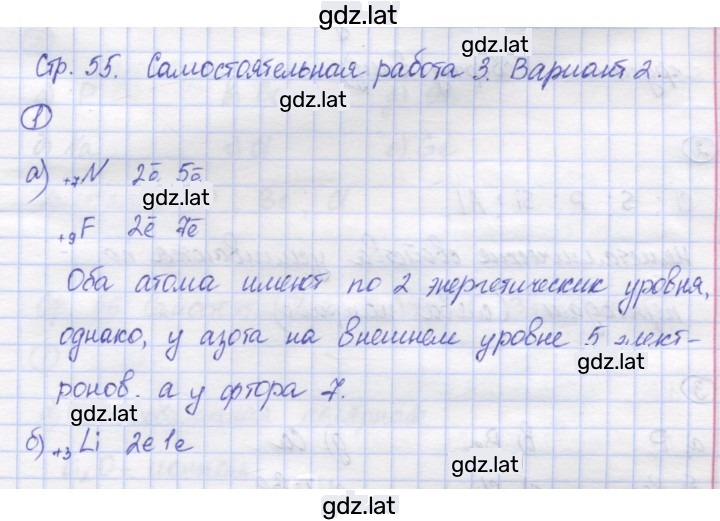 gdz.lat
Стр. 55. Самостоятельная работа 3. Вариант 2.
gdz.lat
gdz.lat
1
а) +7N 2ē 5ē
gdz.lat
+9F 2ē 7ē
gdz.lat
Оба атома имеют по 2 энергетических уровня,
однако, у азота на внешнем уровне 5 элект-
gdz.lat
ронов. а у фтора 7.
gdz.lat
б) +3Li 2e 1e
gdz.lat
gdz.lat